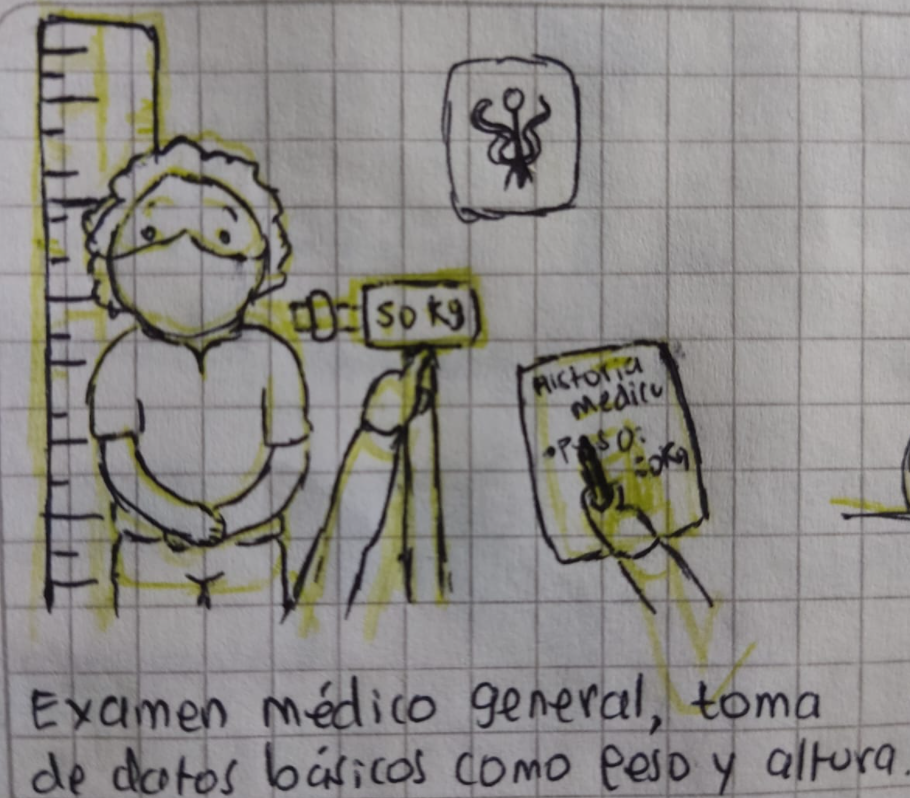 50 kg
Historia
medica
• Peso:
50Kg
Examen médico general, toma
de datos básicos como peso y altura.